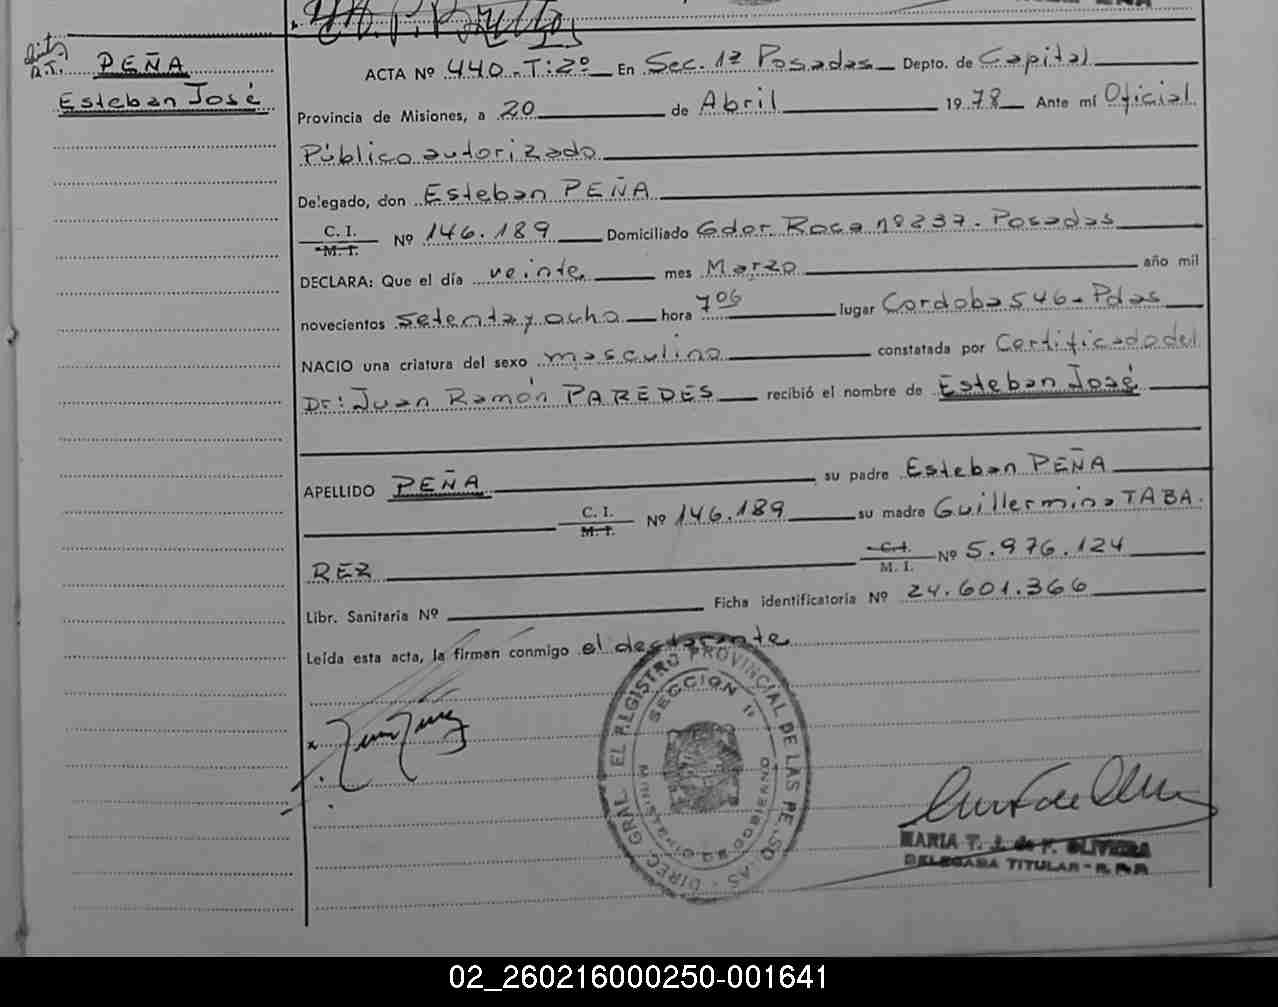 PEÑA
Esteban José
ACTA Nº 440.T:2º En Sec. 1ª Posadas Depto. de Capital
Provincia de Misiones, a 20 de Abril 1978 Ante mí Oficial
Público autorizado
Delegado, don Esteban PEÑA
C. I.
M. I. Nº 146.189 Domiciliado Gdor. Roca nº 237. Posadas
DECLARA: Que el día veinte mes Marzo año mil
novecientos setenta y ocho hora 7 06 lugar Cordoba 546 - Pdas
NACIO una criatura del sexo masculino constatada por Certificado del
Dr: Juan Ramón PAREDES recibió el nombre de Esteban José
APELLIDO PEÑA su padre Esteban PEÑA
C. I.
M. I. Nº 146.189 su madre Guillermina TABA
REZ C. I.
M. I. Nº 5.976.124
Libr. Sanitaria Nº Ficha identificatoria Nº 24.601.366
Leída esta acta, la firman conmigo el declarante
DIREC. GRAL. EL REGISTRO PROVINCIAL DE LAS PERSONAS
SECCION 1ª
MINISTERIO DE GOBIERNO
MARIA T. J. de F. OLIVEIRA
DELEGADA TITULAR - R. P. P.
02_260216000250-001641